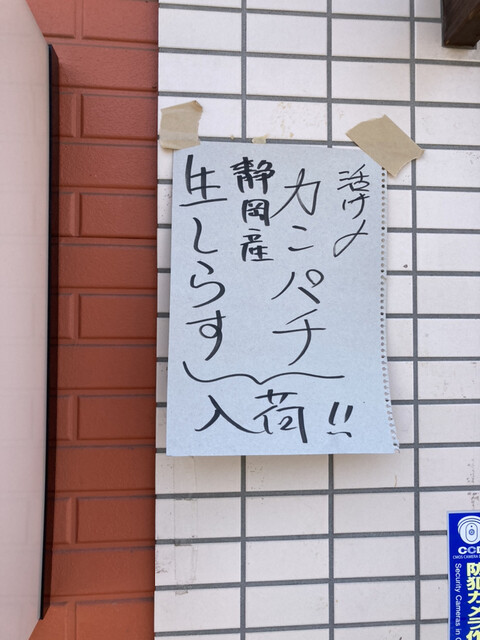 活け〆
カンパチ
静岡産
生しらす
入荷!!
CMOS CAMERA
防犯カメラ
Security Cameras in